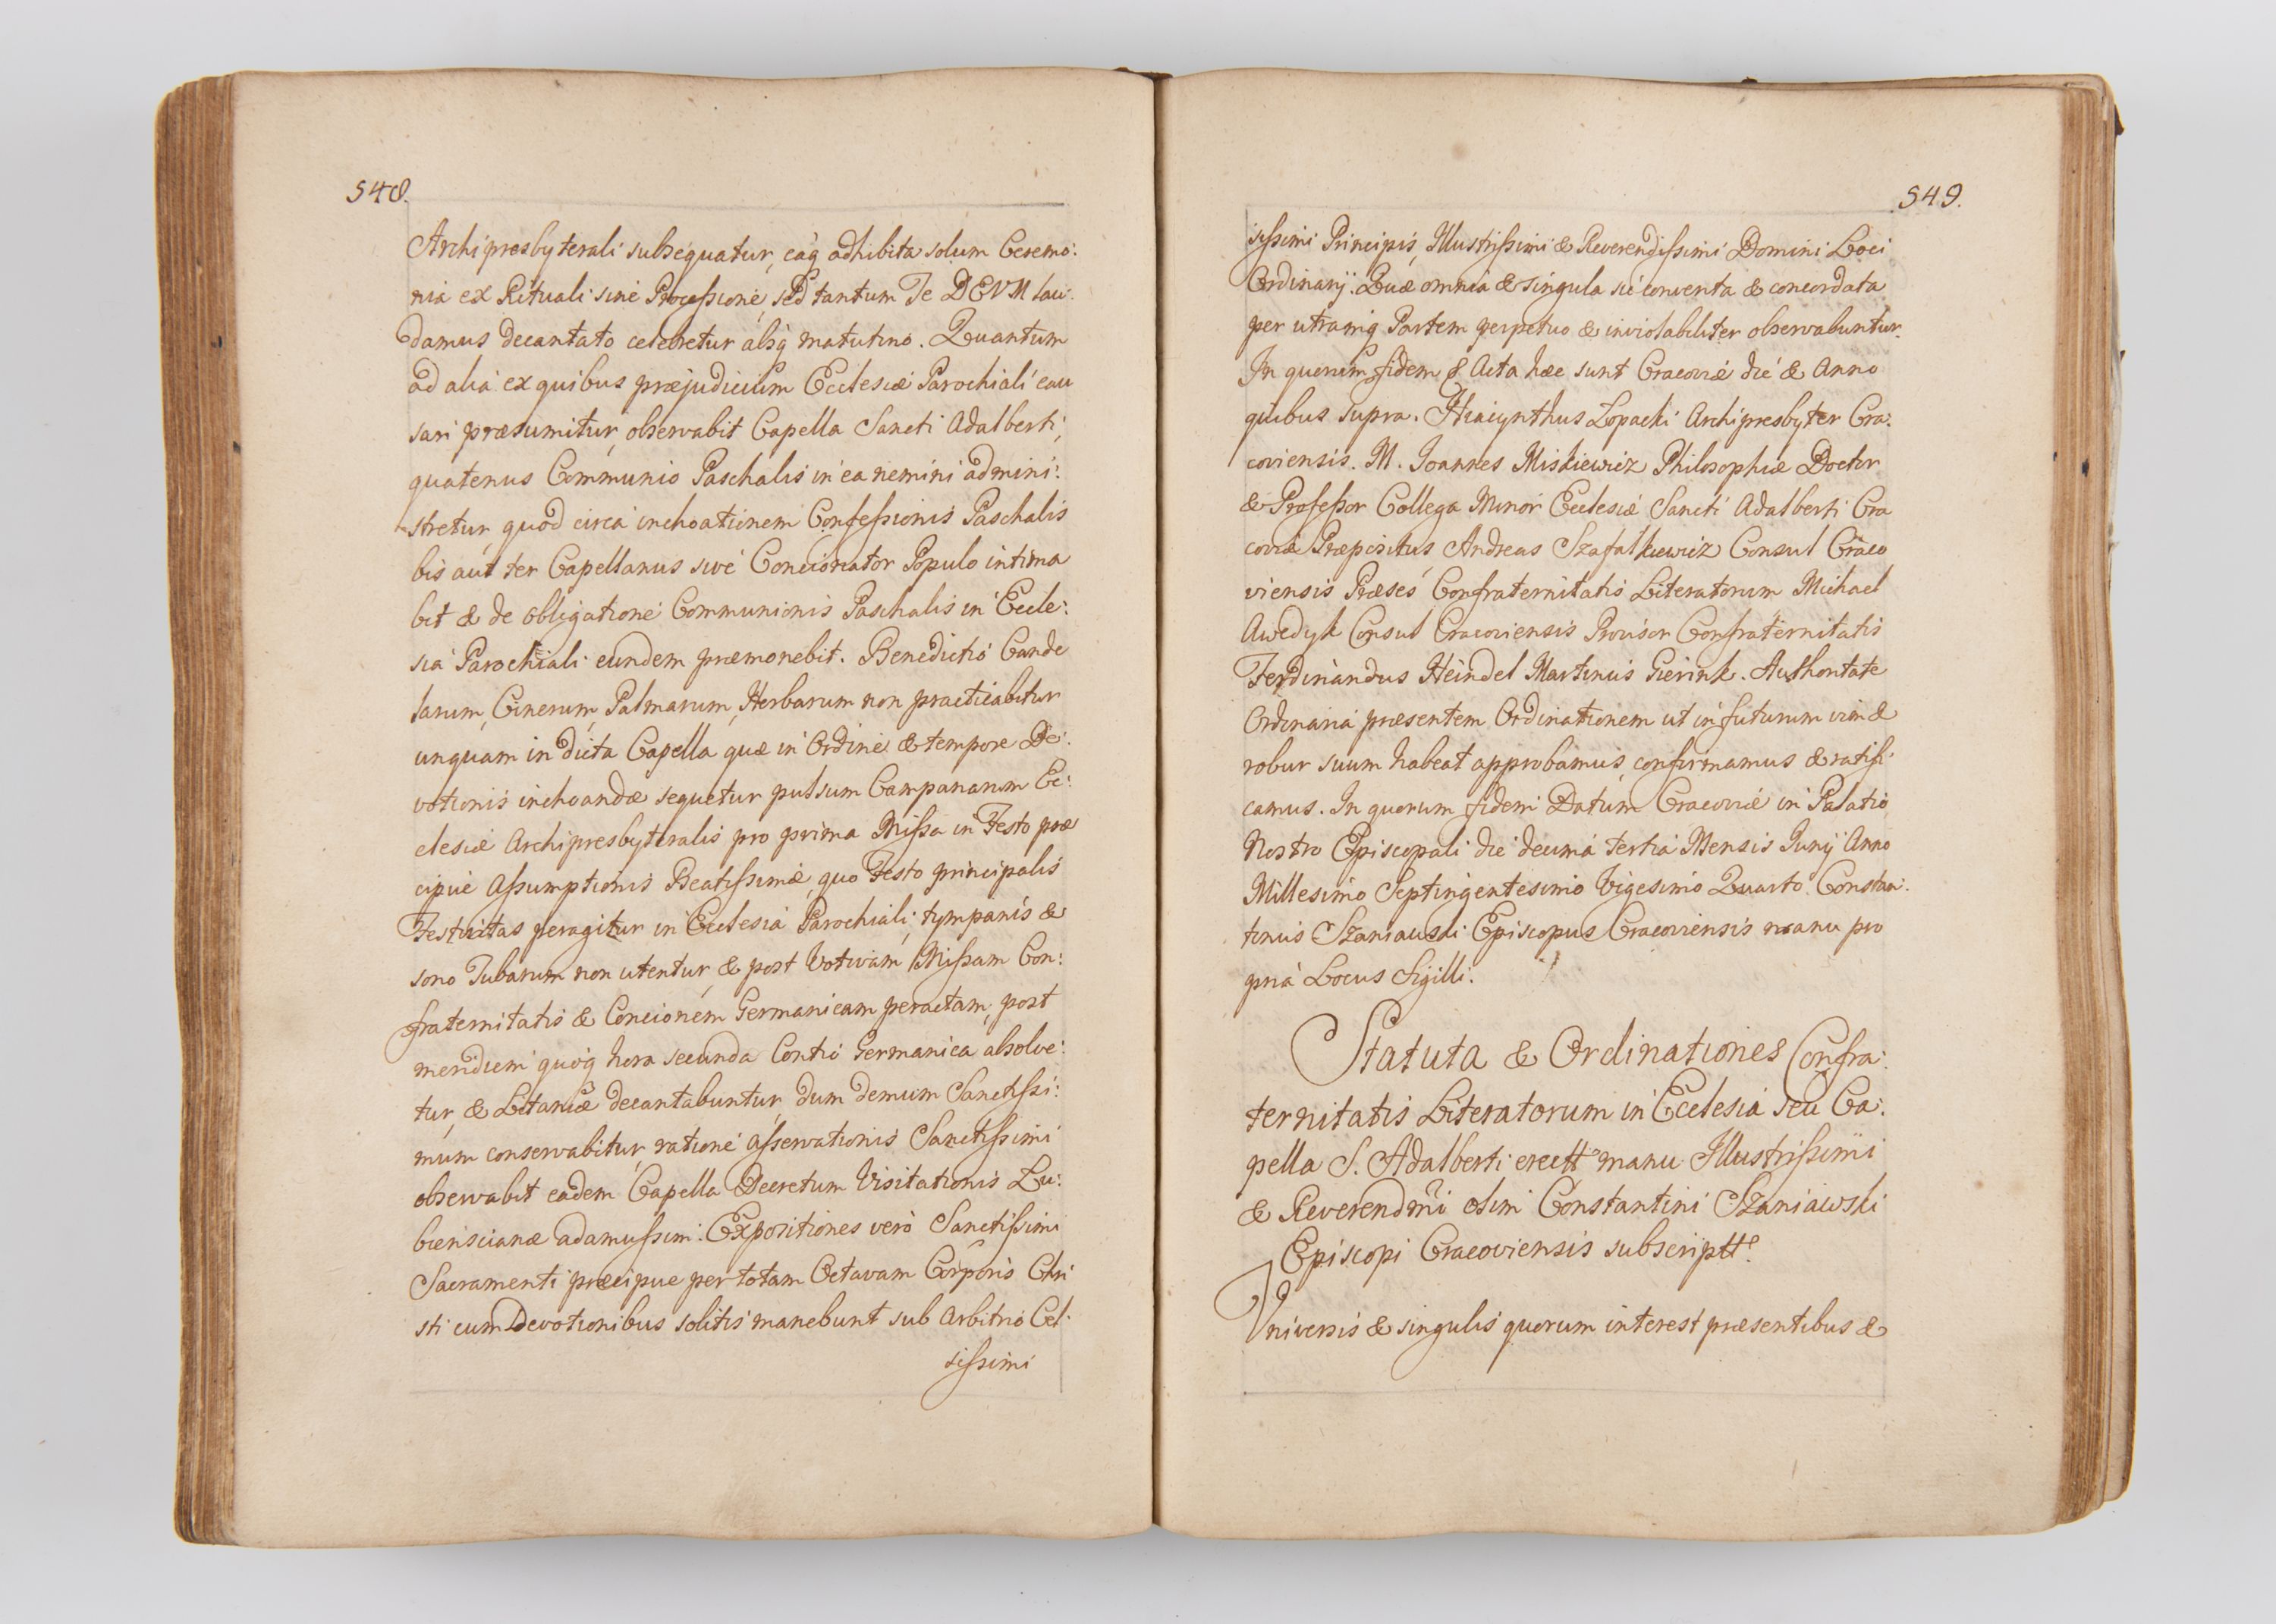 548.
Archipresbyterali subsequatur, eaq adhibita solum Ceremo:
nia ex Rituali sine Processione, sed tantum Te DEVM lau:
damus decantato celebretur absq matutino. Quantum
ad alia ex quibus præjudicium Ecclesiæ Parochiali cau
sari præsumitur, observabit Capella Sancti Adalberti,
quatenus Communio Paschalis in ea nemini admini:
stretur, quod circa inchoationem Confessionis Paschalis
bis aut ter Capellanus sive Concionator Populo intima
bit & de obligatione Communionis Paschalis in Eccle:
sia Parochiali eundem præmonebit. Benedictio Cande
larum, Cinerum, Palmarum, Herbarum non practicabitur
unquam in dicta Capella quæ in Ordine & tempore De:
votionis inchoandæ sequetur pulsum Campanarum Ec:
clesiæ Archipresbyteralis pro prima Missa in Festo præ
cipue Assumptionis Beatissimæ, quo Festo principalis
Festivitas peragitur in Ecclesia Parochiali, tympanis &
sono Tubarum non utentur, & post Votivam Missam Con:
fraternitatis & Concionem Germanicam peractam, post
meridiem quoq hora secunda Contio Germanica absolve:
tur, & Litaniæ decantabuntur, dum demum Sanctissi:
mum conservabitur, ratione asservationis Sanctissimi
observabit eadem Capella Decretum Visitationis Lu:
bienscianæ adamussim: Expositiones vero Sanctissimi
Sacramenti præcipue per totam Octavam Corporis Chri
sti cum Devotionibus solitis manebunt sub Arbitrio Cel:
sissimi
549.
sissimi Principis, Illustrissimi & Reverendissimi Domini Loci
Ordinarij. Quæ omnia & singula sic conventa & concordata
per utramq Partem perpetuo & inviolabiliter observabuntur.
In quorum fidem & Acta hæc sunt Cracoviæ die & Anno
quibus supra. Hiacynthus Łopacki Archipresbyter Cra:
coviensis. M. Joannes Miskiewicz Philosophiæ Doctor
& Professor Collega Minor Ecclesiæ Sancti Adalberti Cra
coviæ Præpositus, Andreas Szafałkiewicz Consul Craco
viensis Præses Confraternitatis Literatorum Michael
Awedyk Consul Cracoviensis Provisor Confraternitatis
Ferdinandus Heindel Martinus Gierink. Authoritate
Ordinaria præsentem Ordinationem ut in futurum vim &
robur suum habeat approbamus, confirmamus & ratifi
camus. In quorum fidem Datum Cracoviæ in Palatio
Nostro Episcopali die decima tertia Mensis Junij Anno
Millesimo Septingentesimo Vigesimo Quarto. Constan:
tinus Szaniauski Episcopus Cracoviensis manu pro
pria Locus Sigilli.
Statuta & Ordinationes Confra:
ternitatis Literatorum in Ecclesia seu Ca:
pella S. Adalberti erectt manu Illustrissimi
& Reverendmi olim Constantini Szaniawski
Episcopi Cracoviensis subscriptt.
Universis & singulis quorum interest præsentibus &